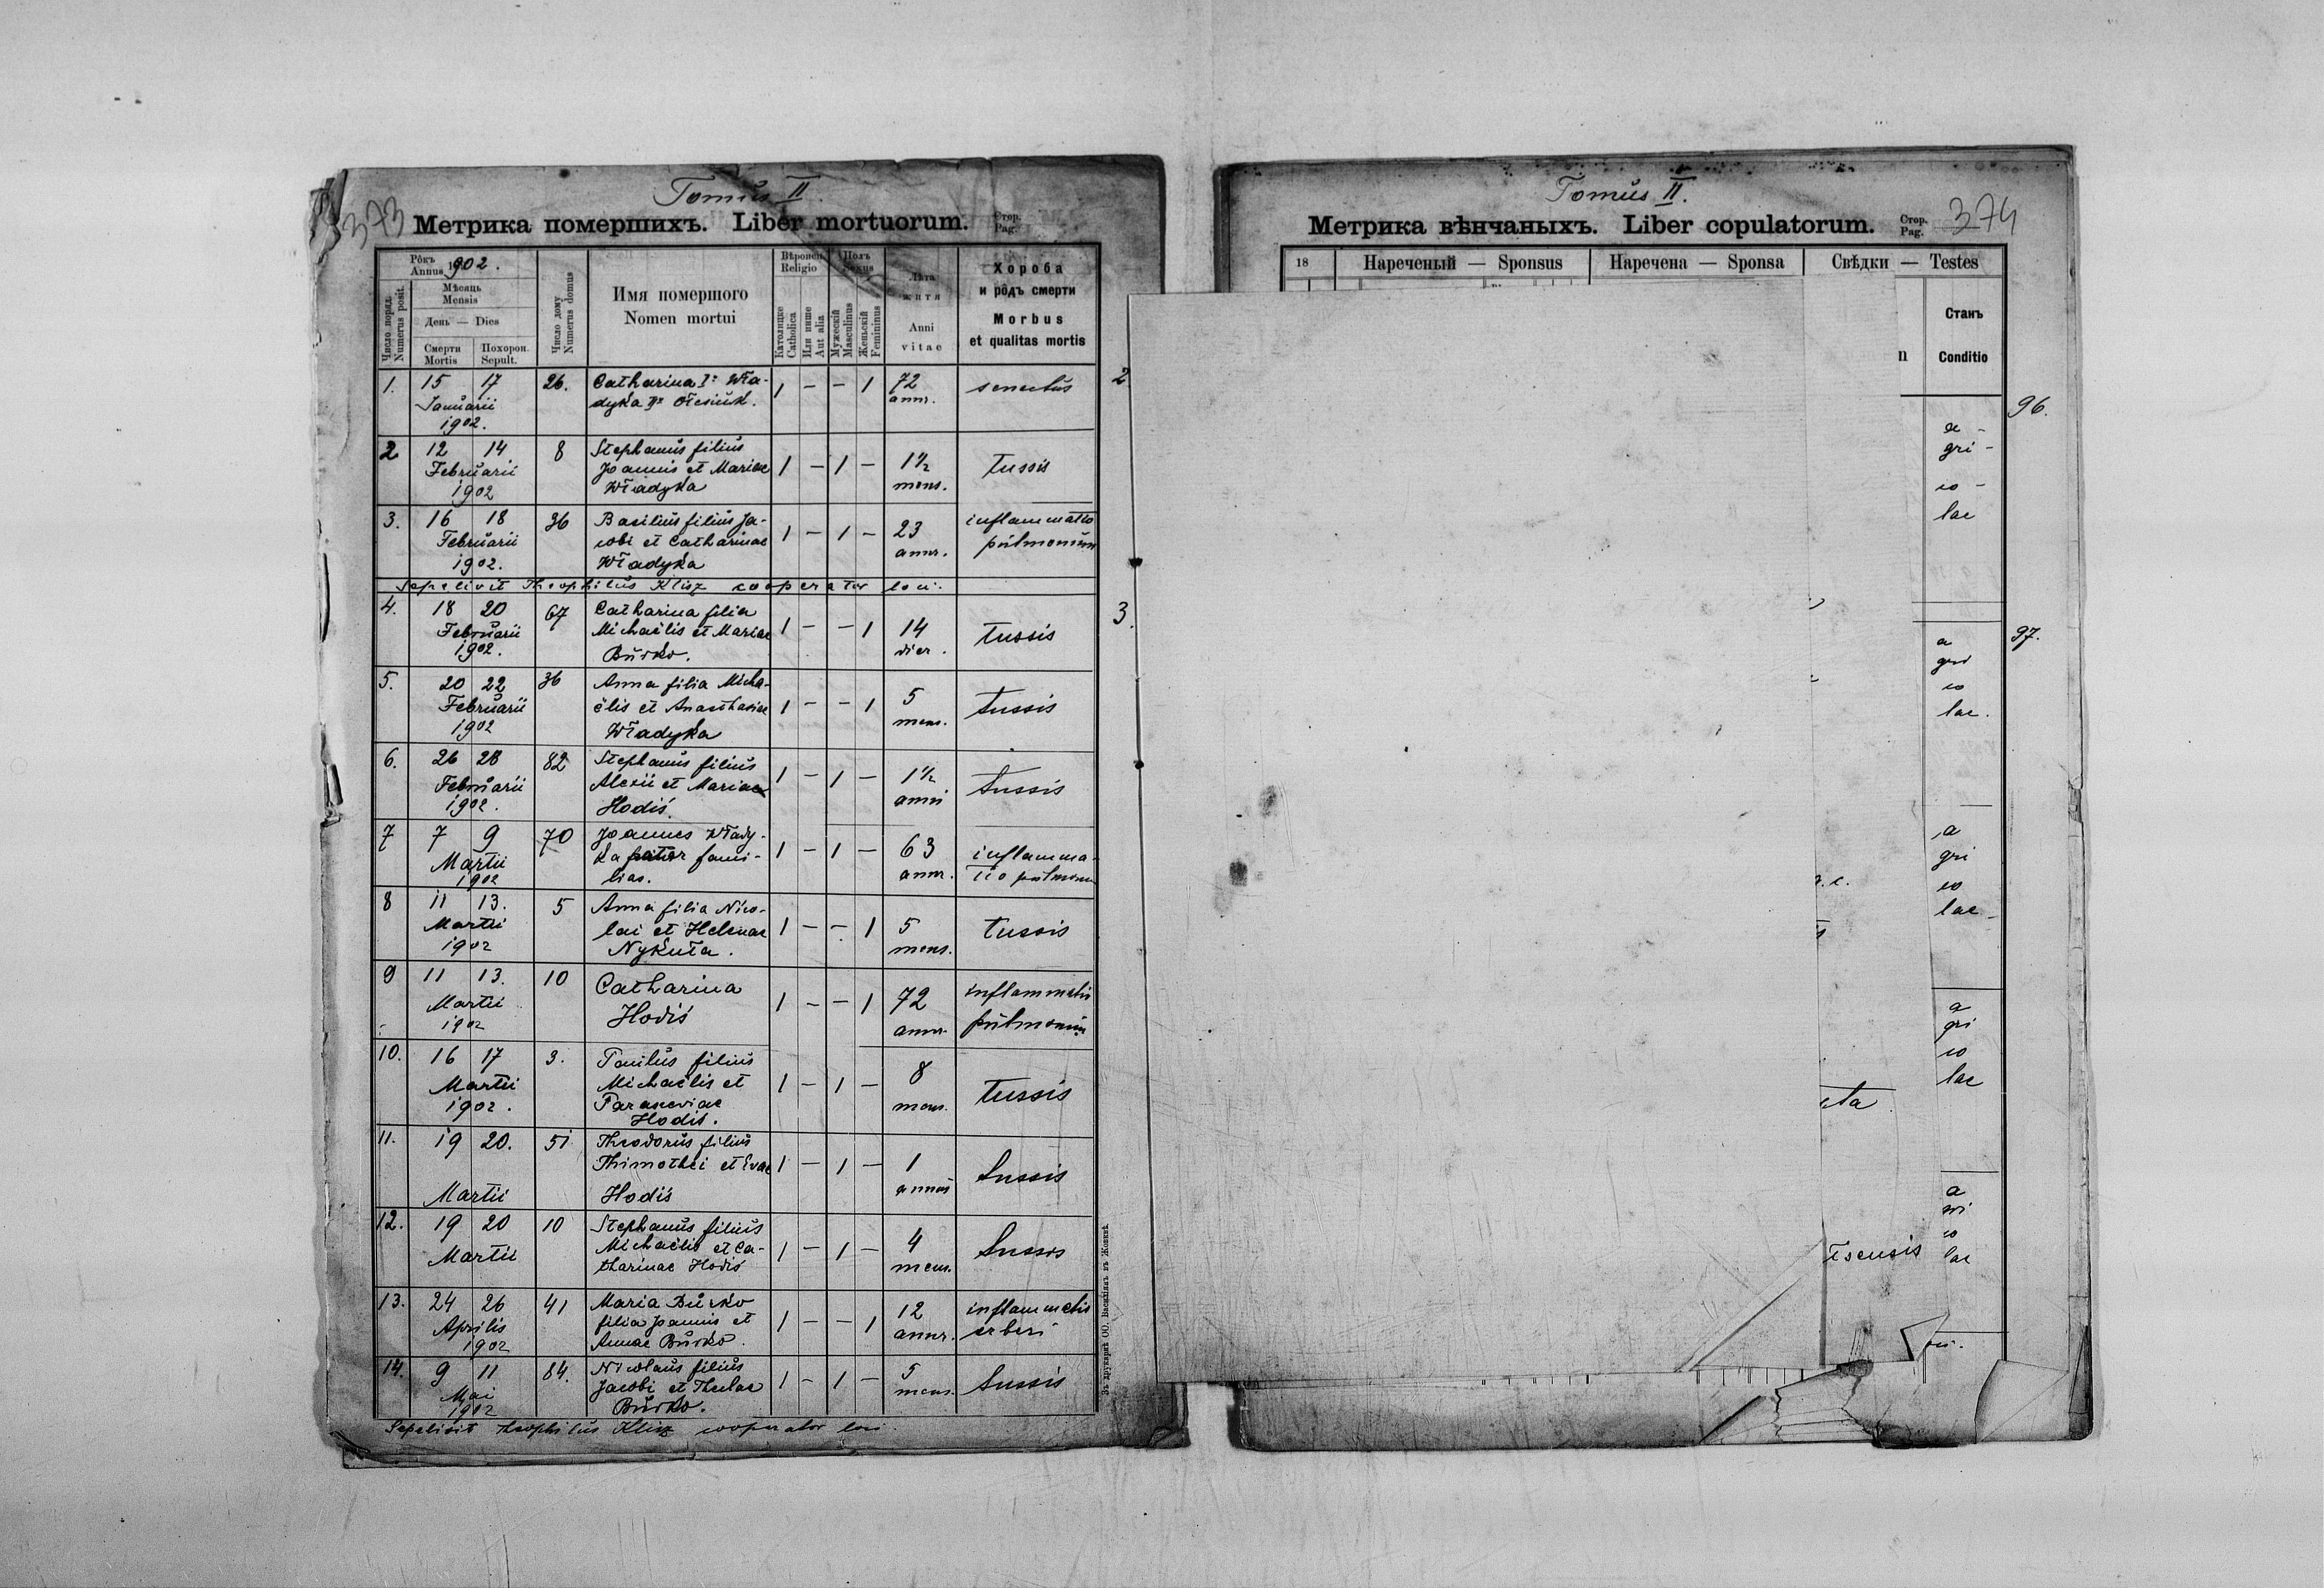 Tomus II.
373
Метрика помершихъ. Liber mortuorum.
Стор.
Pag.
Рôкъ
Annus 1902.
Мѣсяць
Mensis
День — Dies
Смерти
Mortis
Похорон.
Sepult.
Число поряд.
Numerus posit.
Число дому
Numerus domus
Имя помершого
Nomen mortui
Вѣроисп.
Religio
Католицке
Catholica
Или инше
Aut alia
Полъ
Sexus
Мужескій
Masculinus
Женьскій
Femininus
Лѣта
житя
Anni
vitae
Хороба
и рôдъ смерти
Morbus
et qualitas mortis
1. 15 17 26. Catharina Iº Wła- 1 – – 1 72 senectus
Januarii dyka IIº Olesiuk. annr.
1902.
2 12 14 8 Stephanus filius 1 – 1 – 1½ tussis
Februarii Joannis et Mariae mens.
1902 Władyka
3. 16 18 36 Basilius filius Ja- 1 – 1 – 23 inflammatio
Februarii cobi et Catharinae annr. pulmonum
1902. Władyka
Sepelivit Theophilus Klisz cooperator loci.
4. 18 20 67 Catharina filia 1 – – 1 14 tussis
Februarii Michaëlis et Mariae dier.
1902. Burko.
5. 20 22 36 Anna filia Micha- 1 – – 1 5 tussis
Februarii ëlis et Anasthasiae mens.
1902 Władyka
6. 26 28 82 Stephanus filius 1 – 1 – 1½ tussis
Februarii Alexii et Mariae anni
1902. Hodiś.
7 7 9 70 Joannes Włady- 1 – 1 – 63 inflamma-
Martii ka pater fami- annr. tio pulmonum
1902 lias.
8 11 13. 5 Anna filia Nico- 1 – – 1 5 tussis
Martii lai et Helenae mens.
1902 Nykuła.
9 11 13. 10 Catharina 1 – – 1 72 inflammatio
Martii Hodiś annr. pulmonum
1902
10. 16 17 3. Paulus filius 1 – 1 – 8 tussis
Martii Michaëlis et mens.
1902. Parasceviae
Hodiś.
11. 19 20. 51 Theodorus filius 1 – 1 – 1 tussis
Thimothei et Evae annus
Martii Hodiś
12. 19 20 10 Stephanus filius 1 – 1 – 4 tussis
Martii Michaëlis et Ca- mens.
tharinae Hodiś
13. 24 26 41 Maria Burko 1 – – 1 12
Aprilis filia Joannis et annr.
1902 Annae Burko.
14. 9 11 84. Nicolaus filius 1 – 1 – 5 tussis
Mai Jacobi et Theclae mens.
1902 Burko.
Sepelivit Theophilus Klisz cooperator loci.
Въ друкарнѣ ОО. Василіянъ въ Жовквѣ.
2
3.
Tomus II.
Метрика вѣнчаныхъ. Liber copulatorum.
Стор.
Pag.
374
18
Нареченый — Sponsus
Наречена — Sponsa
Свѣдки — Testes
Станъ
n Conditio
96.
gri-
co-
lae
97.
a
gri
co
lae.
a
gri
co
lae
a
gri
co
lae
a
gri
co
lae